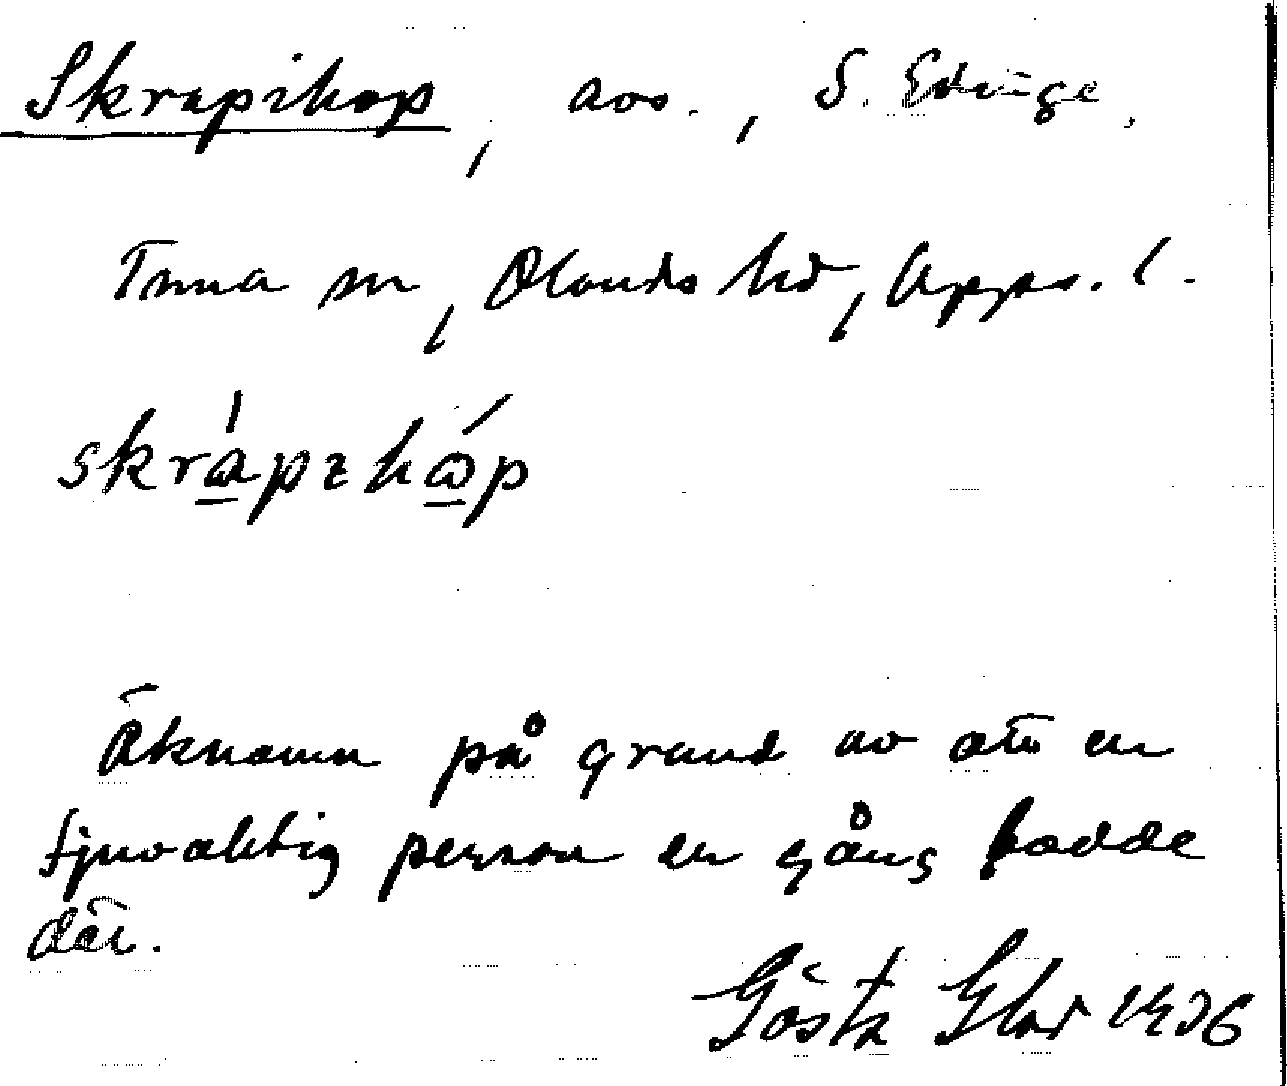 Skrapihop, avs., S. Edinge,
Tuna sn, Olands hd, Upps. l.
skràpıhώ̲p
Öknamn på grund av att en
tjuvaktig person en gång bodde
där.
Gösta Glad 1936